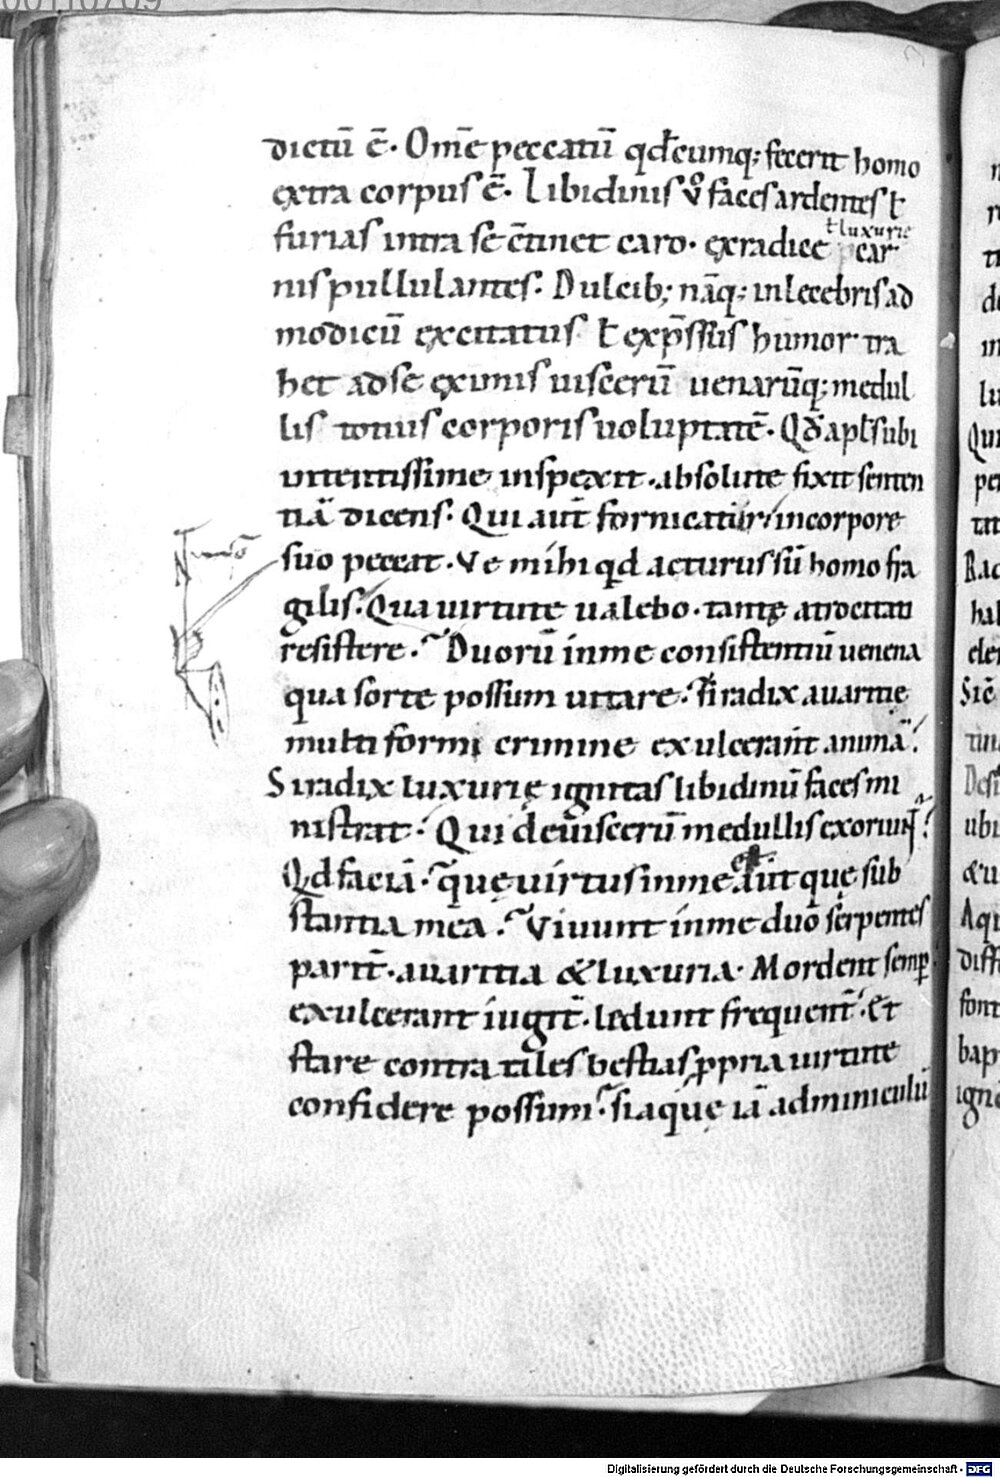 dictū ē. Om̄e peccatū qd̄cumq; fecerit homo
extra corpus ē. Libidinis v̊ faces ardentes ł
furias intra se c̄tinet caro. ex radice car
ł luxurię
nis pullulantes. Dulcib; nāq; inlecebris ad
modicū excitatus ł exp̄ssus humor tra
het ad se ex imis uiscerū uenarūq; medul
lis totius corporis uoluptatē. Qđ apłs ubi
intentissime inspexit. absolute fixit senten
tiā dicens. Qui aut̄ fornicatur in corpore
suo peccat. Ve mihi qd acturus sū homo fra
gilis. Qua uirtute ualebo. tantę atrocitati
resistere. Duorū in me consistentiū uenena
qua sorte possum uitare. Si radix auaritię
multi formi crimine exulcerant animā.
Si radix luxurię ignitas libidinū faces mi
nistrat. Qui de uiscerū medullis exoriunt̄
Qd faciā. quę uirtus in me est aut quę sub
stantia mea. Viuunt in me duo serpentes
parit̄. auaritia & luxuria. Mordent semp̄
exulcerant iugit̄. ledunt frequent̄. Et
stare contra tales bestias ꝓpria uirtute
confidere possum. si aquę iā adminiculū
Digitalisierung gefördert durch die Deutsche Forschungsgemeinschaft - DFG